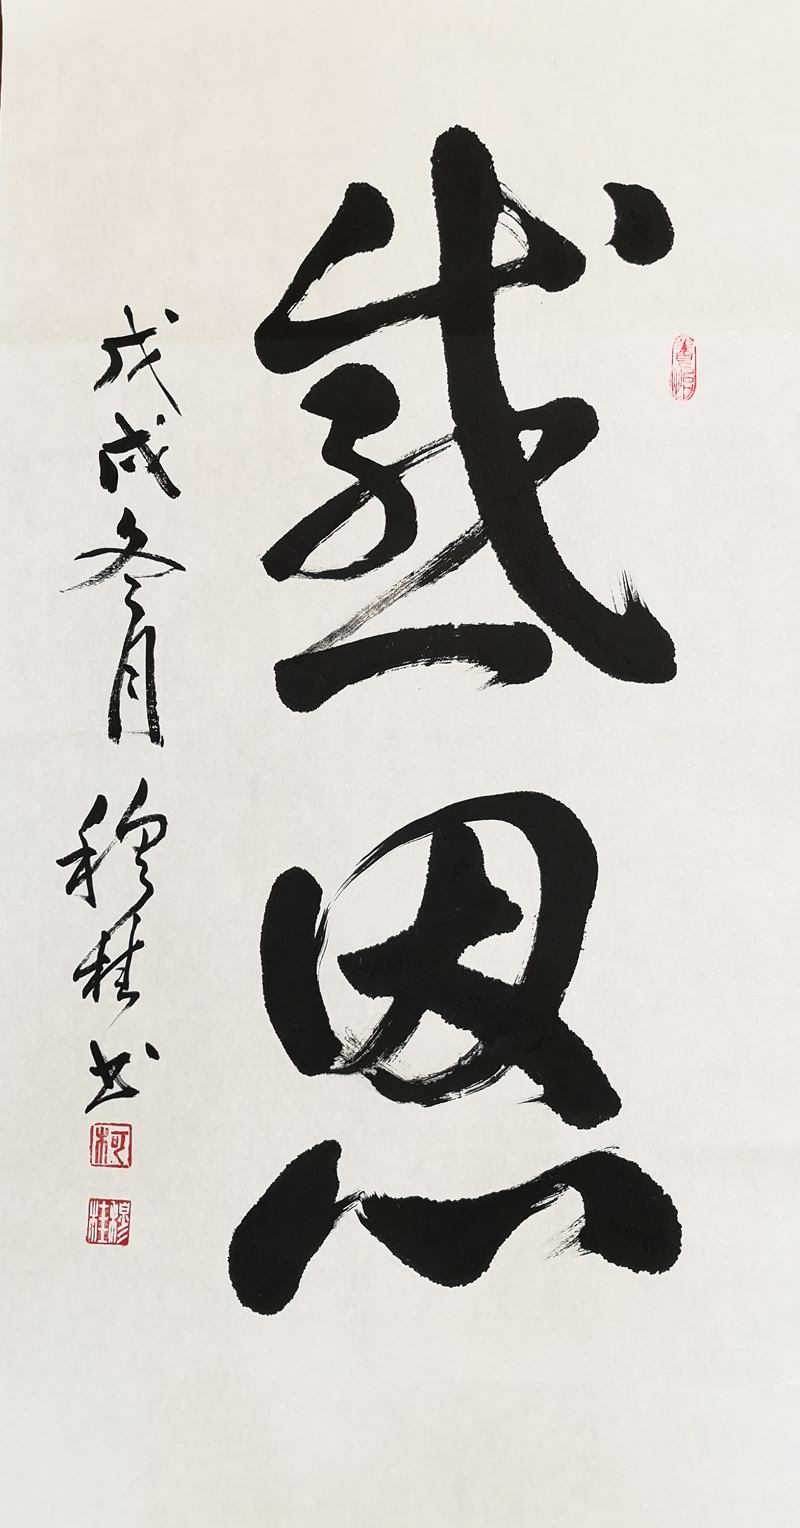 感恩
戊戌冬月 穆桂书
柯
穆桂